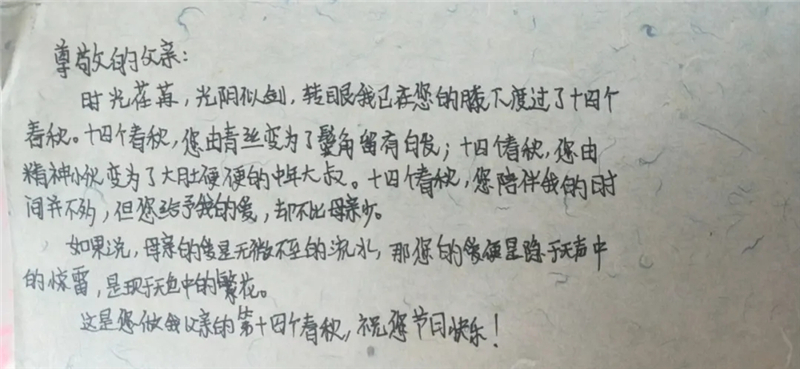 尊敬的父亲:
时光荏苒，光阴似剑，转眼我已在您的膝下度过了十四个
春秋。十四个春秋，您由青丝变为了鬓角留有白发；十四个春秋，您由
精神小伙变为了大肚便便的中年大叔。十四个春秋，您陪伴我的时
间并不多，但您给予我的爱，却不比母亲少。
如果说，母亲的爱是无微不至的流水，那您的爱便是隐于无声中
的惊雷，是现于无色中的繁花。
这是您做我父亲的第十四个春秋，祝您节日快乐！